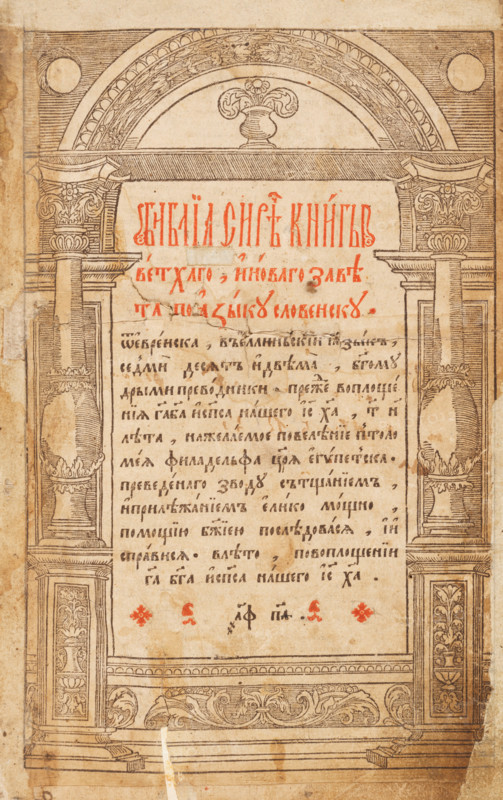 Библїа сирѣ книгы
ветхаго , и новаго завѣ
та по ꙗзыку словенску .
ѿ еврейска , въ еллиньскїй ꙗзыкъ ,
седмиⷨ десятъ и двѣма , бг҃ому
дрыми преводники . преⷤе воплоще
нїя гаⷭ҇ бга҃ и сп҃са нашего іс҃ ха҃ , т҃ и
лѣта , на желаемое повелѣнїе птоло
меꙗ филадельфа црⷭ҇я египетска .
преведенаго зводу съ тщанїемъ ,
и прилѣжанїемъ елико мощно ,
помощїю бж҃їею послѣдовася , и и
справися . в лѣто , по воплощенїи
га҃ бг҃а и сп҃са нашего іс҃ ха҃ .
҂аф па҃ .